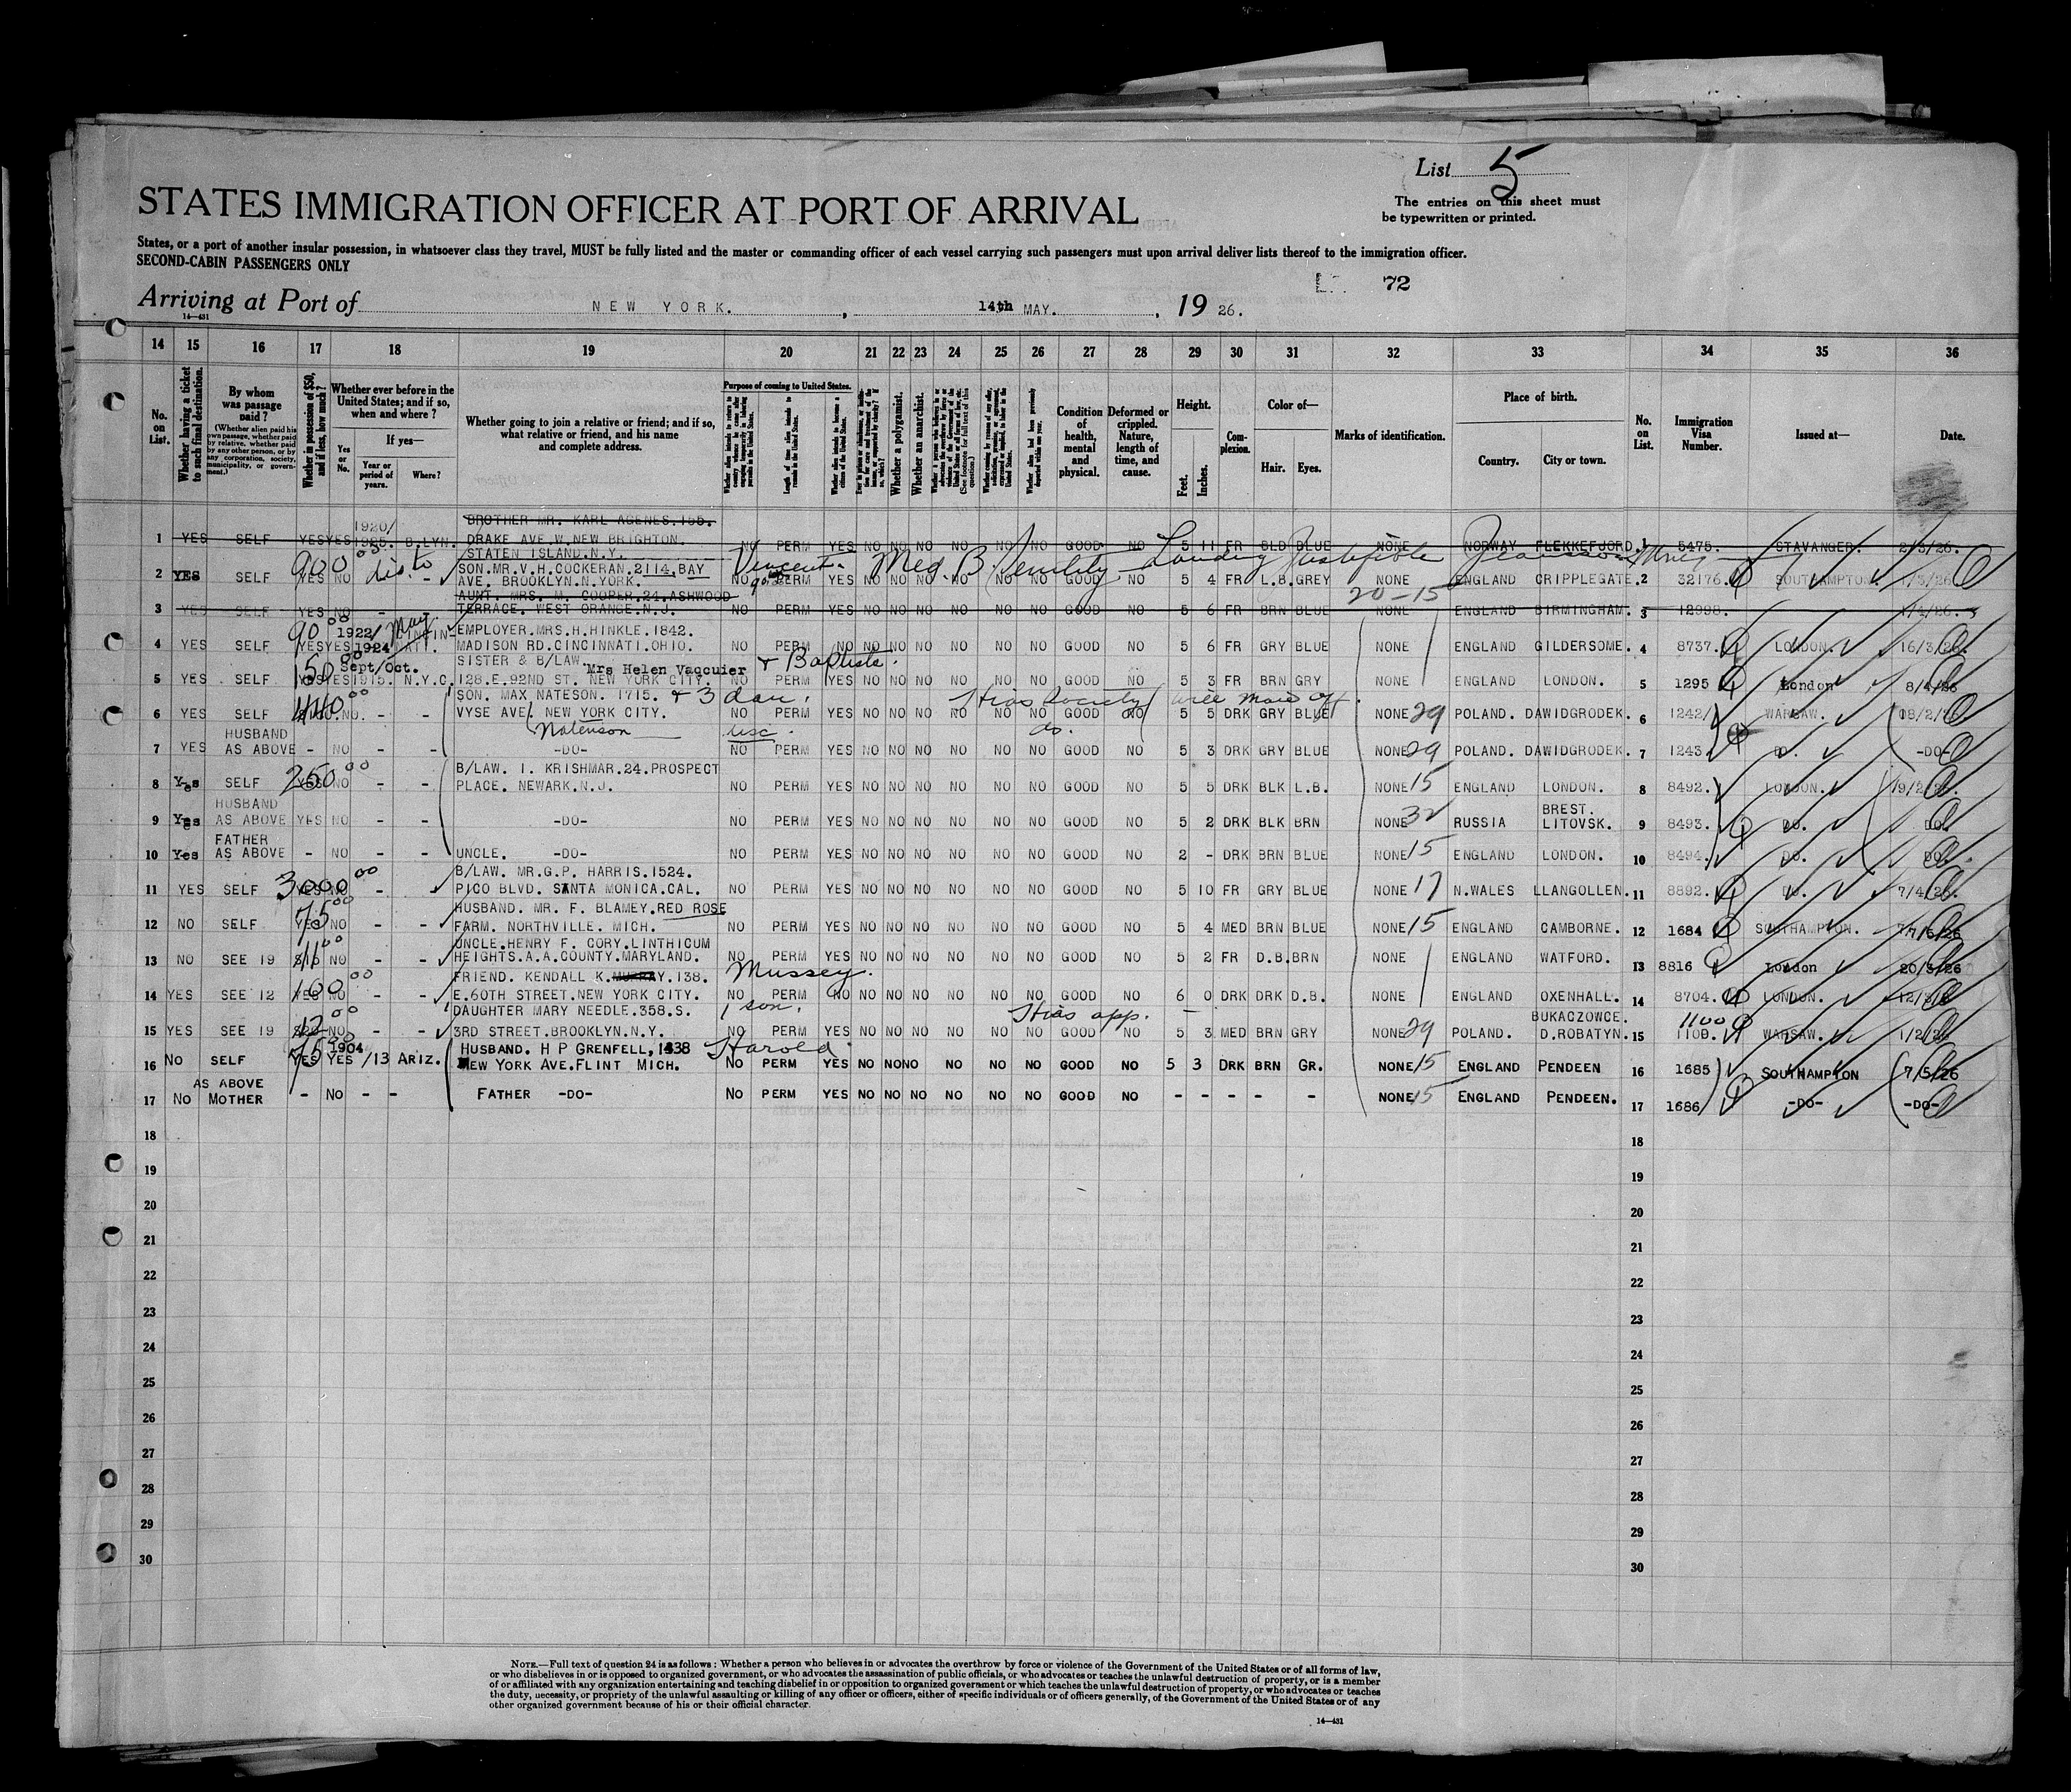 List 5
The entries on this sheet must
be typewritten or printed.
STATES IMMIGRATION OFFICER AT PORT OF ARRIVAL
States, or a port of another insular possession, in whatsoever class they travel, MUST be fully listed and the master or commanding officer of each vessel carrying such passengers must upon arrival deliver lists thereof to the immigration officer.
SECOND-CABIN PASSENGERS ONLY
72
Arriving at Port of NEW YORK. , 14th MAY. , 19 26.
14—431
14 15 16 17 18 19 20 21 22 23 24 25 26 27 28 29 30 31 32 33 34 35 36
No. on List.
Whether having a ticket to such final destination.
By whom was passage paid?
(Whether alien paid his own passage, whether paid by relative, whether paid by any other person, or by any corporation, society, municipality, or government.)
Whether in possession of $50, and if less, how much?
Whether ever before in the United States; and if so, when and where?
Yes or No.
If yes—
Year or period of years.
Where?
Whether going to join a relative or friend; and if so, what relative or friend, and his name and complete address.
Purpose of coming to United States.
Length of time alien intends to remain in the United States.
Whether alien intends to become a citizen of the United States.
Whether a polygamist.
Whether an anarchist.
Condition of health, mental and physical.
Deformed or crippled. Nature, length of time, and cause.
Height.
Feet.
Inches.
Complexion.
Color of—
Hair.
Eyes.
Marks of identification.
Place of birth.
Country.
City or town.
No. on List.
Immigration Visa Number.
Issued at—
Date.
1920/ BROTHER MR. KARL AGENES.155.
1 YES SELF YES YES 1925. B.LYN. DRAKE AVE.W.NEW BRIGHTON. NO PERM YES NO NO NO NO NO NO GOOD NO 5 11 FR BLD BLUE NONE NORWAY FLEKKEFJORD. 1 5475. STAVANGER. 2/3/26.
STATEN ISLAND.N.Y.
900 00 SON.MR.V.H.COCKERAN.2114,BAY Vincent. Med. B. Senility Landing Justifiable
2 YES SELF YES NO - AVE. BROOKLYN.N.YORK. NO PERM YES NO NO NO NO NO NO GOOD NO 5 4 FR L.B. GREY NONE ENGLAND CRIPPLEGATE. 2 32176. SOUTHAMPTON. 1/3/26
AUNT. MRS. M. COOPER.24.ASHWOOD 20-15
3 YES SELF YES NO - - TERRACE. WEST ORANGE.N.J. NO PERM YES NO NO NO NO NO NO GOOD NO 5 6 FR BRN BLUE NONE ENGLAND BIRMINGHAM. 3 12998. 1/4/26.
90 00 1922/ May CINCIN- EMPLOYER.MRS.H.HINKLE.1842.
4 YES SELF YES YES 1924 NATI. MADISON RD.CINCINNATI.OHIO. NO PERM NO NO NO NO NO NO NO GOOD NO 5 6 FR GRY BLUE NONE ENGLAND GILDERSOME. 4 8737. LONDON. 16/3/26.
150 00 Sept/Oct. SISTER & B/LAW. Mrs Helen Vaquier + Baptiste.
5 YES SELF YES YES 1915. N.Y.C. 128.E.92ND ST. NEW YORK CITY. NO PERM YES NO NO NO NO NO NO GOOD NO 5 3 FR BRN GRY NONE ENGLAND LONDON. 5 1295 London 8/4/26
440 00 SON. MAX NATESON. 1715. + 3 dau. Hias Society will move off.
6 YES SELF NO. - - VYSE AVE. NEW YORK CITY. NO PERM YES NO NO NO NO NO NO GOOD NO 5 5 DRK GRY BLUE NONE 29 POLAND. DAWIDGRODEK. 6 1242 WARSAW. 18/2/26
HUSBAND Natenson usc. do.
7 YES AS ABOVE - NO - - -DO- NO PERM YES NO NO NO NO NO NO GOOD NO 5 3 DRK GRY BLUE NONE 29 POLAND. DAWIDGRODEK. 7 1243. DO. -DO-
250 00 B/LAW. I. KRISHMAR.24.PROSPECT
8 Yes SELF YES NO - - PLACE. NEWARK.N.J. NO PERM YES NO NO NO NO NO NO GOOD NO 5 5 DRK BLK L.B. NONE 15 ENGLAND LONDON. 8 8492. LONDON. 9/2/26.
HUSBAND BREST.
9 Yes AS ABOVE YES NO - - -DO- NO PERM YES NO NO NO NO NO NO GOOD NO 5 2 DRK BLK BRN NONE 32 RUSSIA LITOVSK. 9 8493. DO. DO.
FATHER
10 Yes AS ABOVE - NO - - UNCLE. -DO- NO PERM YES NO NO NO NO NO NO GOOD NO 2 - DRK BRN BLUE NONE 15 ENGLAND LONDON. 10 8494. DO. DO.
3000 00 B/LAW. MR.G.P. HARRIS.1524.
11 YES SELF YES NO - PICO BLVD. SANTA MONICA.CAL. NO PERM YES NO NO NO NO NO NO GOOD NO 5 10 FR GRY BLUE NONE 17 N.WALES LLANGOLLEN. 11 8892. DO. 7/4/26.
75 00 HUSBAND. MR. F. BLAMEY.RED ROSE
12 NO SELF YES NO - - FARM. NORTHVILLE. MICH. NO PERM YES NO NO NO NO NO NO GOOD NO 5 4 MED BRN BLUE NONE 15 ENGLAND CAMBORNE. 12 1684 SOUTHAMPTON. 7/5/26
11 00 UNCLE.HENRY F. CORY.LINTHICUM
13 NO SEE 19 $10 NO - - HEIGHTS.A.A.COUNTY.MARYLAND. NO PERM YES NO NO NO NO NO NO GOOD NO 5 2 FR D.B. BRN NONE ENGLAND WATFORD. 13 8816 London 20/3/26
100 00 FRIEND. KENDALL K. MURRAY.138. Mussey.
14 YES SEE 12 YES NO - - E.60TH STREET.NEW YORK CITY. NO PERM NO NO NO NO NO NO NO GOOD NO 6 0 DRK DRK D.B. NONE ENGLAND OXENHALL. 14 8704. LONDON.
12 00 DAUGHTER MARY NEEDLE.358.S. 1 son. Hias app. BUKACZOWCE. 1100
15 YES SEE 19 $20 NO - - 3RD STREET.BROOKLYN.N.Y. NO PERM YES NO NO NO NO NO NO GOOD NO 5 3 MED BRN GRY NONE 29 POLAND. D.ROBATYN. 15 1100. WARSAW. 1/2/26
75 00 1904 HUSBAND. H P GRENFELL, 1438 Harold.
16 No SELF YES YES /13 ARIZ. NEW YORK AVE.FLINT MICH. NO PERM YES NO NO NO NO NO NO GOOD NO 5 3 DRK BRN GR. NONE 15 ENGLAND PENDEEN 16 1685 SOUTHAMPTON 7/5/26
AS ABOVE
17 No MOTHER - NO - - FATHER -DO- NO PERM YES NO NO NO NO NO NO GOOD NO - - - - - NONE 15 ENGLAND PENDEEN. 17 1686 -DO- -DO-
18 18
19 19
20 20
21 21
22 22
23 23
24 24
25 25
26 26
27 27
28 28
29 29
30 30
NOTE.—Full text of question 24 is as follows: Whether a person who believes in or advocates the overthrow by force or violence of the Government of the United States or of all forms of law,
or who disbelieves in or is opposed to organized government, or who advocates the assassination of public officials, or who advocates or teaches the unlawful destruction of property, or is a member
of or affiliated with any organization entertaining and teaching disbelief in or opposition to organized government or which teaches the unlawful destruction of property, or who advocates or teaches
the duty, necessity, or propriety of the unlawful assaulting or killing of any officer or officers, either of specific individuals or of officers generally, of the Government of the United States or of any
other organized government because of his or their official character.
14—431